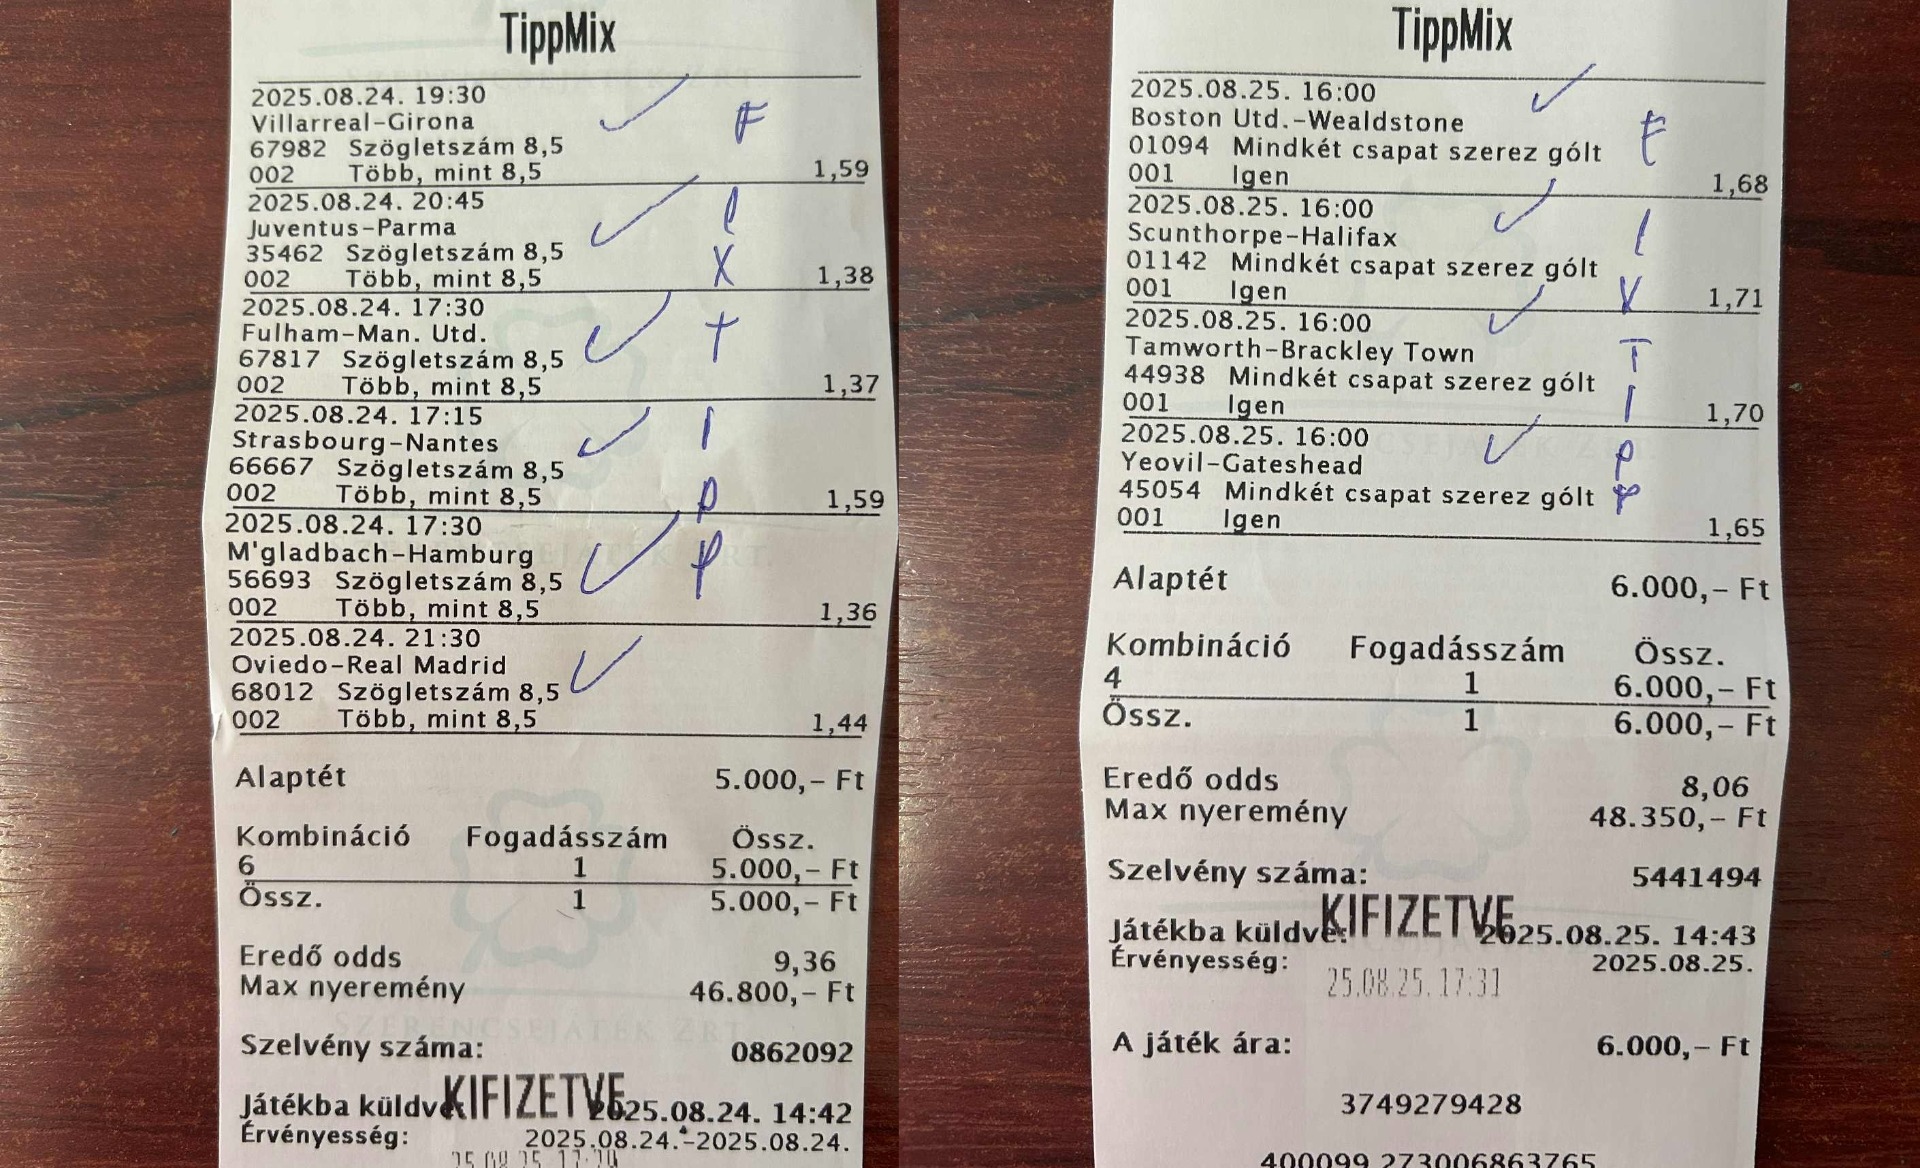 TippMix
2025.08.24. 19:30
Villarreal-Girona
67982 Szögletszám 8,5
002 Több, mint 8,5 1,59
2025.08.24. 20:45
Juventus-Parma
35462 Szögletszám 8,5
002 Több, mint 8,5 1,38
2025.08.24. 17:30
Fulham-Man. Utd.
67817 Szögletszám 8,5
002 Több, mint 8,5 1,37
2025.08.24. 17:15
Strasbourg-Nantes
66667 Szögletszám 8,5
002 Több, mint 8,5 1,59
2025.08.24. 17:30
M'gladbach-Hamburg
56693 Szögletszám 8,5
002 Több, mint 8,5 1,36
2025.08.24. 21:30
Oviedo-Real Madrid
68012 Szögletszám 8,5
002 Több, mint 8,5 1,44
Alaptét 5.000,- Ft
Kombináció Fogadásszám Össz.
6 1 5.000,- Ft
Össz. 1 5.000,- Ft
Eredő odds 9,36
Max nyeremény 46.800,- Ft
SZERENCSEJÁTÉK ZRT.
Szelvény száma: 0862092
KIFIZETVE
Játékba küldve 2025.08.24. 14:42
Érvényesség: 2025.08.24.-2025.08.24.
F
i
x
t
i
p
p
TippMix
2025.08.25. 16:00
Boston Utd.-Wealdstone
01094 Mindkét csapat szerez gólt
001 Igen 1,68
2025.08.25. 16:00
Scunthorpe-Halifax
01142 Mindkét csapat szerez gólt
001 Igen 1,71
2025.08.25. 16:00
Tamworth-Brackley Town
44938 Mindkét csapat szerez gólt
001 Igen 1,70
2025.08.25. 16:00
Yeovil-Gateshead
45054 Mindkét csapat szerez gólt
001 Igen 1,65
Alaptét 6.000,- Ft
Kombináció Fogadásszám Össz.
4 1 6.000,- Ft
Össz. 1 6.000,- Ft
Eredő odds 8,06
Max nyeremény 48.350,- Ft
Szelvény száma: 5441494
KIFIZETVE
Játékba küldve: 2025.08.25. 14:43
Érvényesség: 2025.08.25.
25.08.25. 17:31
A játék ára: 6.000,- Ft
3749279428
400099 273006863765
F
i
x
T
i
p
p